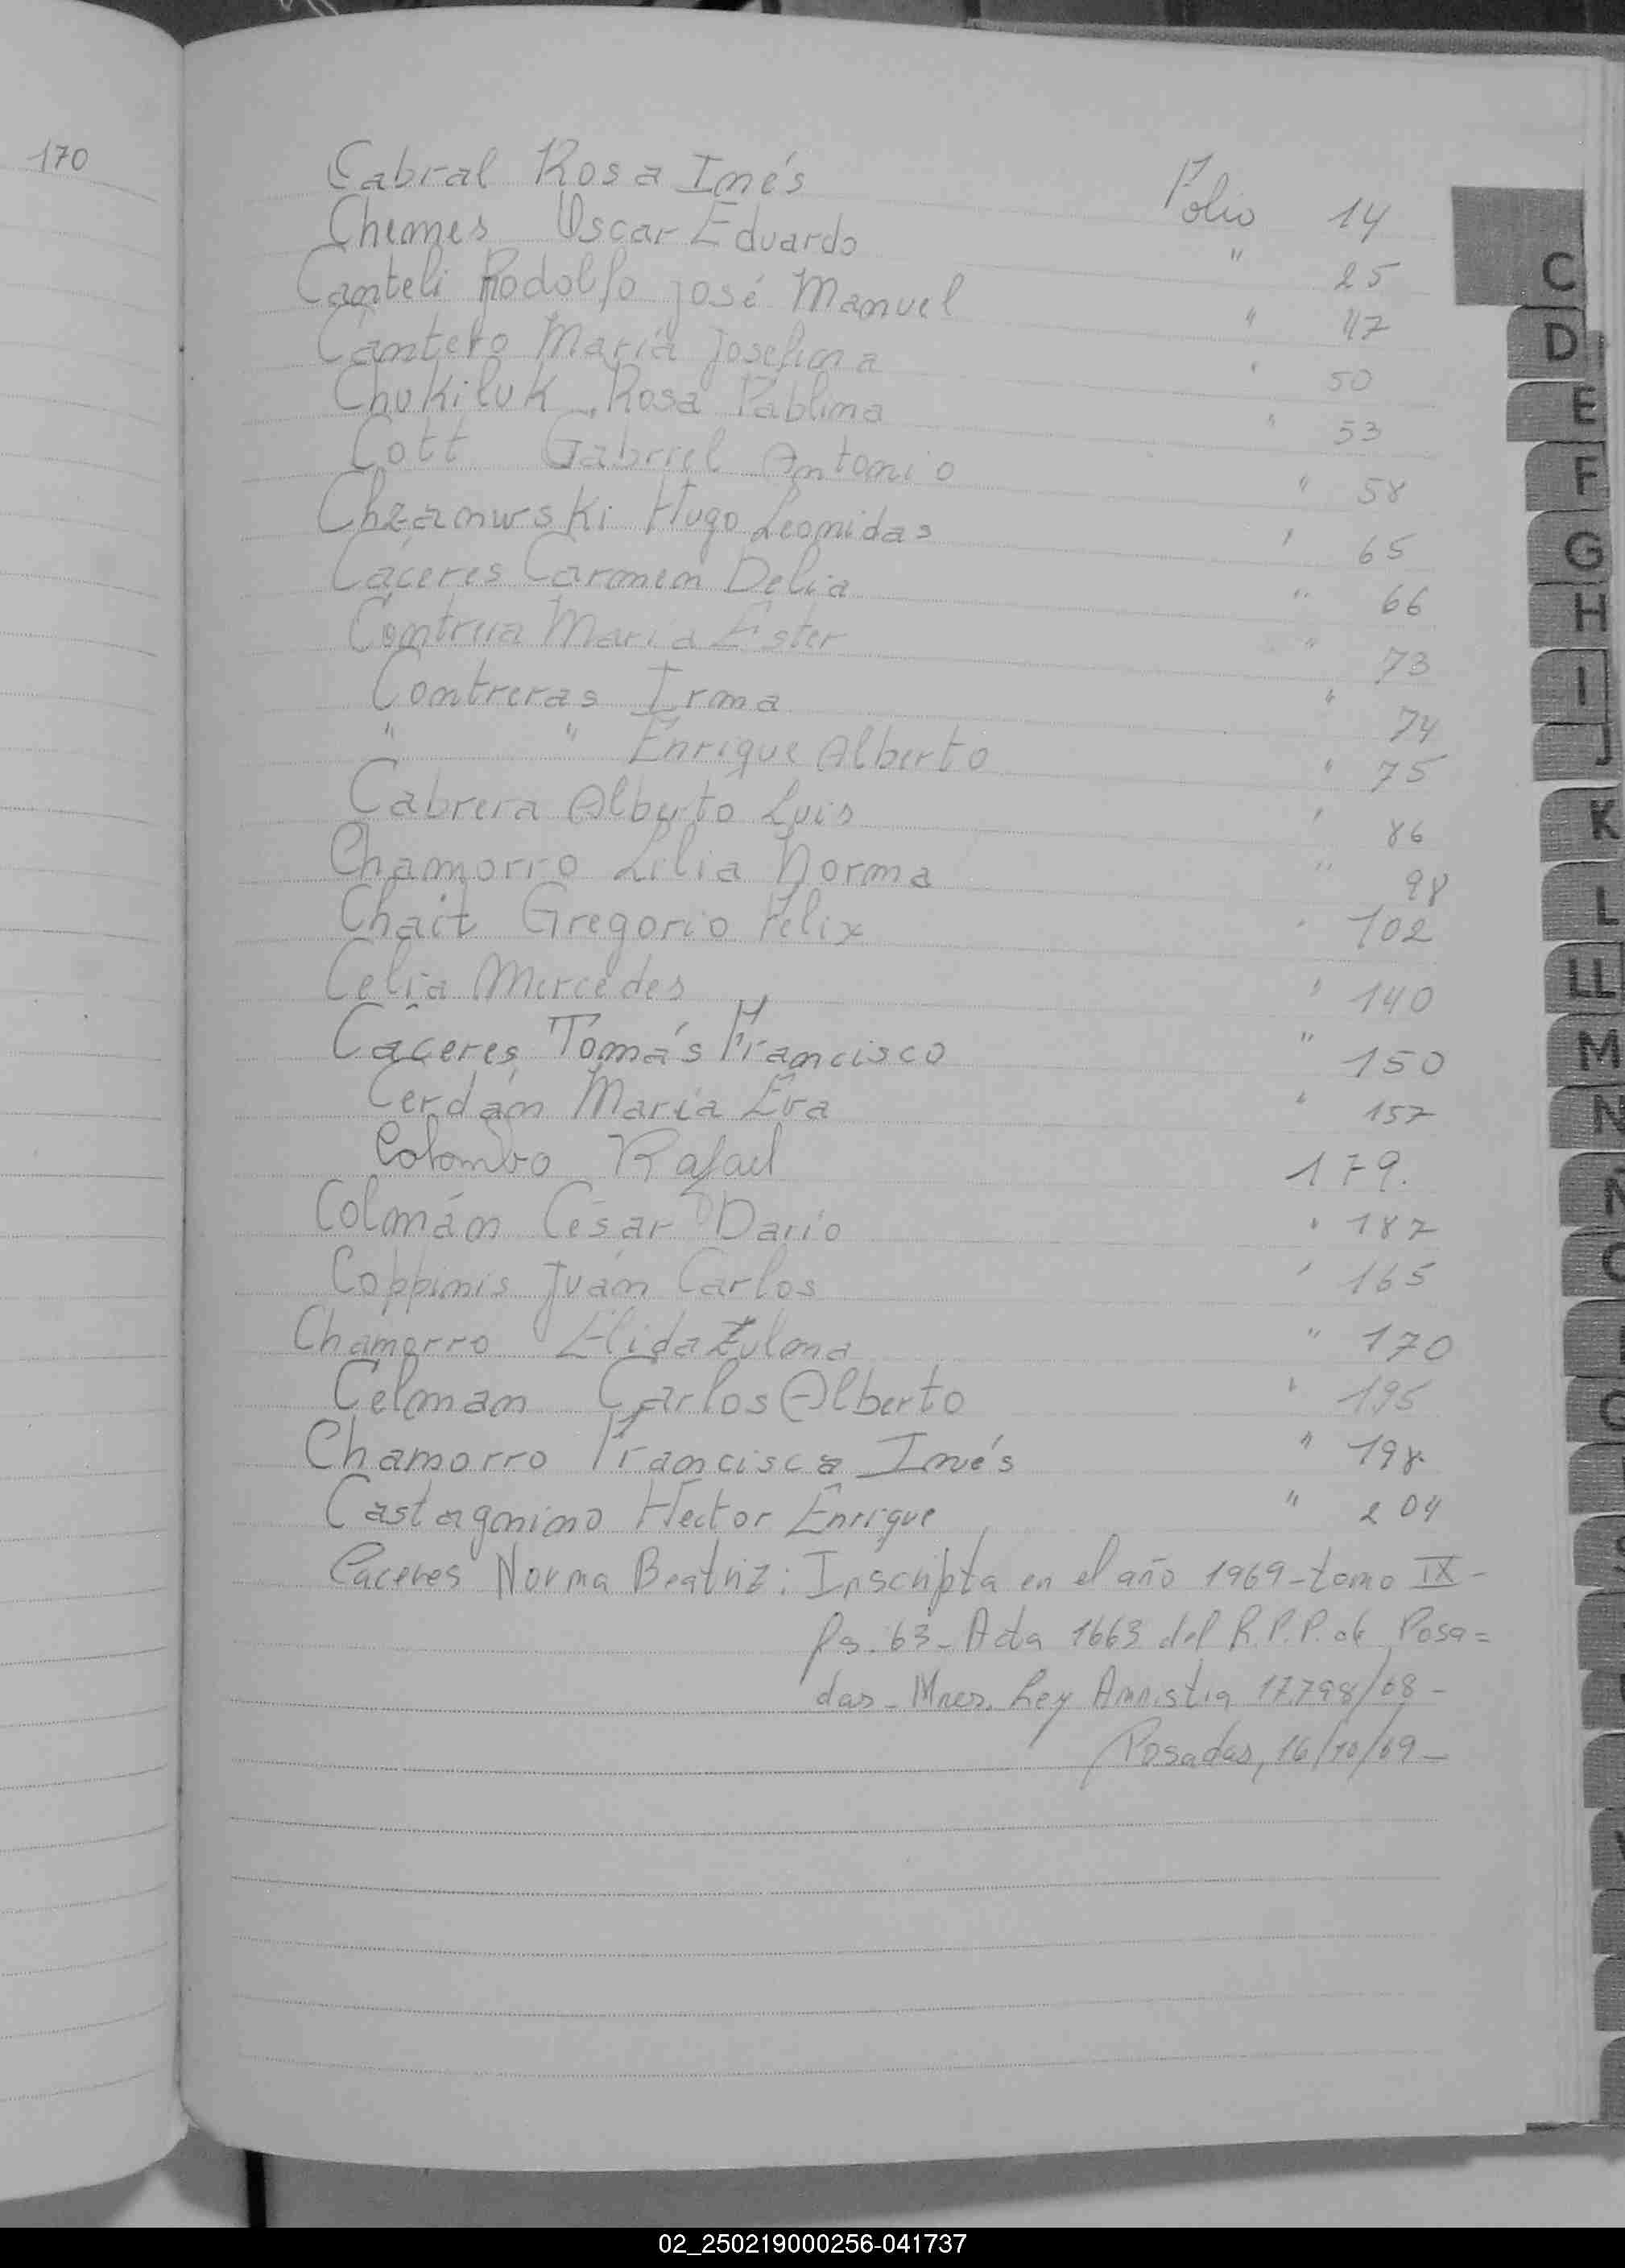 170
Cabral Rosa Inés Folio 14
Chemes Oscar Eduardo " 25
Canteli Rodolfo José Manuel " 47
Cantero María Josefina " 50
Chukiluk Rosa Pablina " 53
Cott Gabriel Antonio " 58
Chzanwski Hugo Leonidas " 65
Cáceres Carmen Delia " 66
Contrera María Ester " 73
Contreras Irma " 74
" " Enrique Alberto " 75
Cabrera Alberto Luis " 86
Chamorro Lilia Norma " 98
Chait Gregorio Felix " 102
Celia Mercedes " 140
Cáceres Tomás Francisco " 150
Cerdán María Eva " 157
Colombo Rafael 179.
Colmán César Dario " 187
Coppinis Juán Carlos " 165
Chamorro Elida Zulma " 170
Celman Carlos Alberto " 195
Chamorro Francisca Inés " 198.
Castagnino Hector Enrique " 204
Caceres Norma Beatriz: Inscripta en el año 1969-tomo IX-
fs. 63- Acta 1663 del R.P.P. de Posa=
das- Mnes. Ley Amnistia 17.798/68-
Posadas, 16/10/69-
C
D
E
F
G
H
I
J
K
L
LL
M
N
02_250219000256-041737